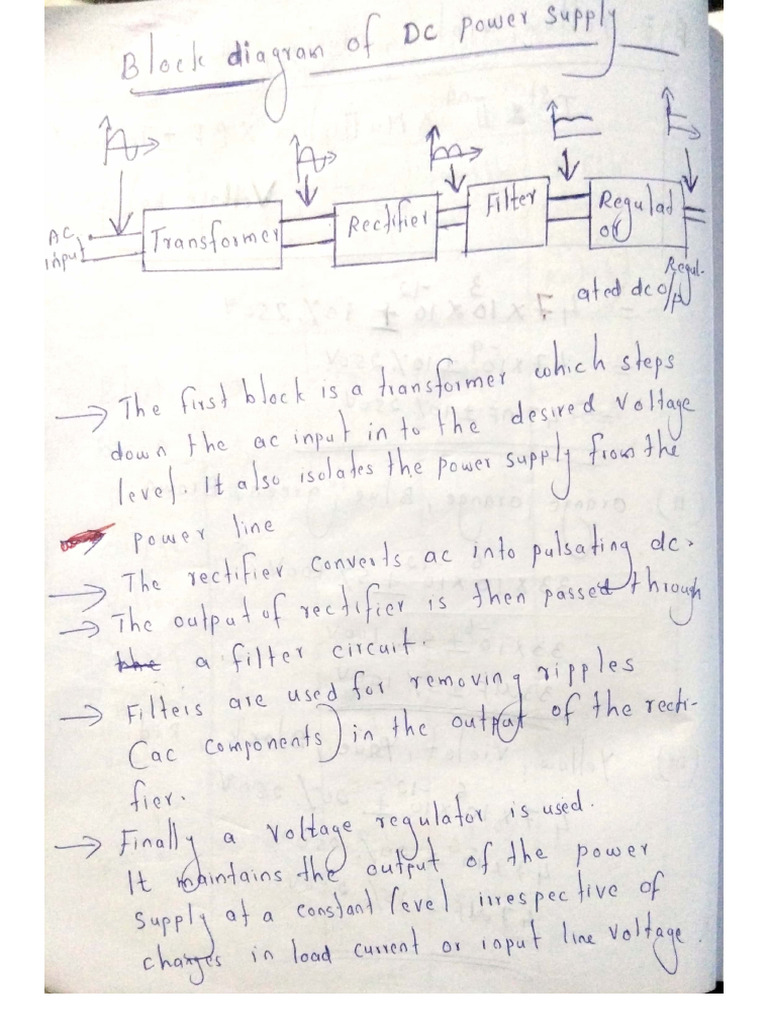 Block diagram of DC power supply
AC
input
Transformer
Rectifier
Filter
Regulat
or
Regul-
ated dc o/p
→ The first block is a transformer which steps
down the ac input in to the desired voltage
level. It also isolates the power supply from the
power line
→ The rectifier converts ac into pulsating dc.
→ The output of rectifier is then passed through
a filter circuit.
→ Filters are used for removing ripples
(ac components) in the output of the recti-
fier.
→ Finally a voltage regulator is used.
It maintains the output of the power
supply at a constant level irrespective of
changes in load current or input line voltage.